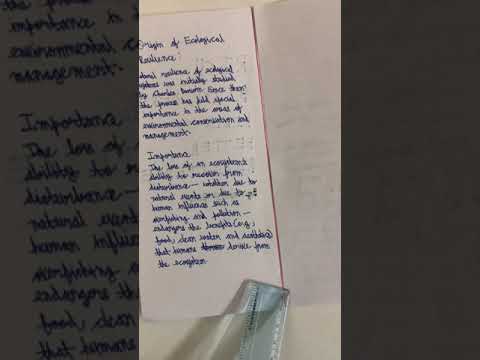 Origin of Ecological
Resilience:
natural resilience of ecological
systems was initially studied
by Charles Darwin. Since then
the process has held special
importance in the areas of
environmental conservation and
management.
Importance
The loss of an ecosystem's
ability to recover from
disturbance— whether due to
natural events or due to
human influences such as
and pollution —
endangers the benefits (e.g.,
food, clean water and
that humans derive from
the ecosystem